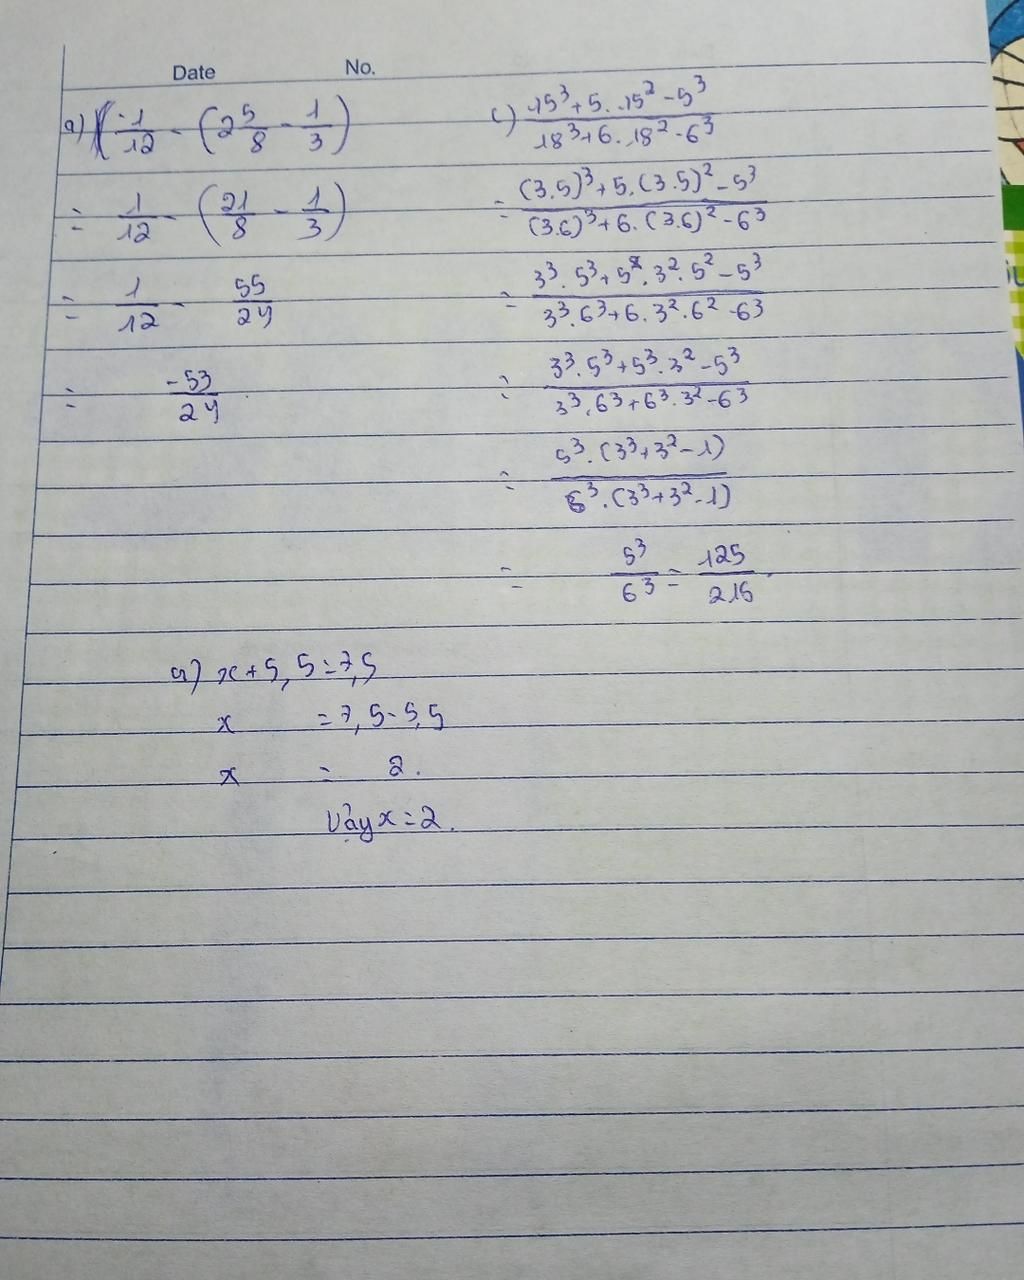 Date No.
a) 1/12 - (2 5/8 - 1/3)
= 1/12 - (21/8 - 1/3)
= 1/12 - 55/24
= -53/24
c) (15³+5.15²-5³)/(18³+6.18²-6³)
= ((3.5)³+5.(3.5)²-5³)/((3.6)³+6.(3.6)²-6³)
= (3³.5³+5.3².5²-5³)/(3³.6³+6.3².6²-6³)
= (3³.5³+5³.3²-5³)/(3³.6³+6³.3²-6³)
= (5³.(3³+3²-1))/(6³.(3³+3²-1))
= 5³/6³ = 125/216.
a) x+5,5=7,5
x =7,5-5,5
x = 2.
Vậy x=2.